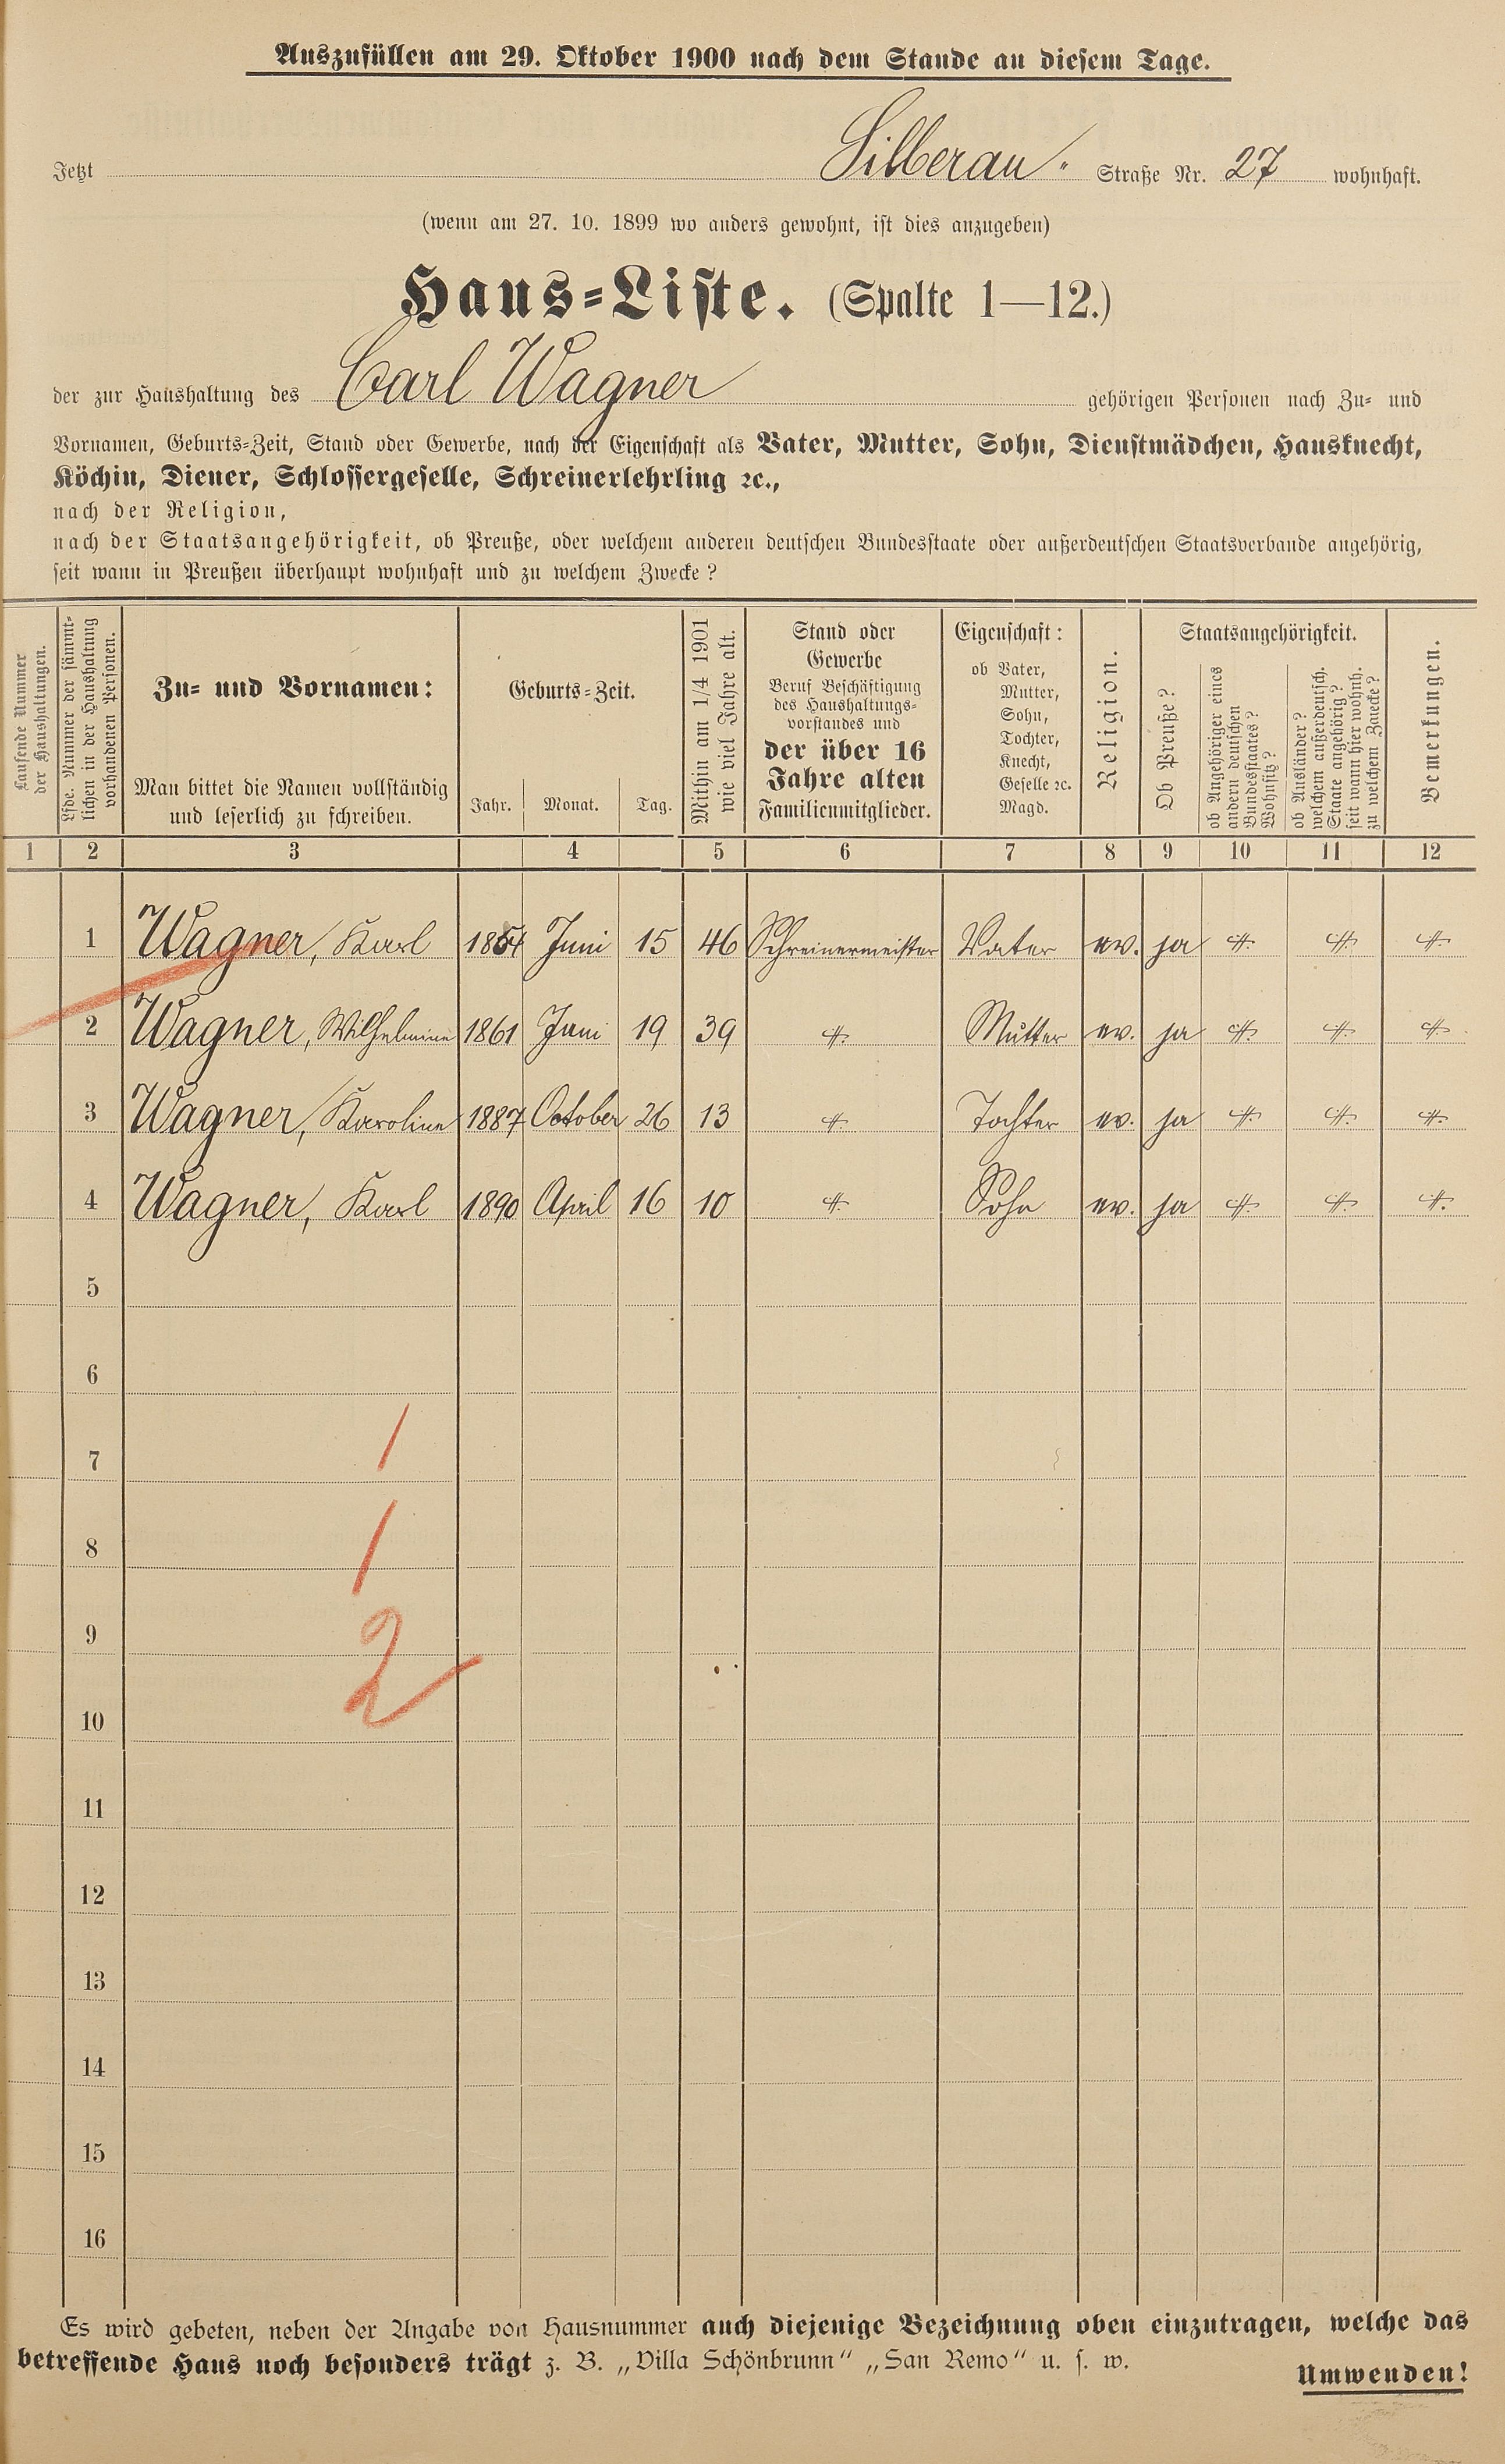 Auszufüllen am 29. Oktober 1900 nach dem Stande an diesem Tage.
Jetzt Silberau Straße Nr. 27 wohnhaft.
(wenn am 27. 10. 1899 wo anders gewohnt, ist dies anzugeben)
Haus-Liste. (Spalte 1—12.)
der zur Haushaltung des Carl Wagner gehörigen Personen nach Zu- und
Vornamen, Geburts-Zeit, Stand oder Gewerbe, nach der Eigenschaft als Vater, Mutter, Sohn, Dienstmädchen, Hausknecht,
Köchin, Diener, Schlossergeselle, Schreinerlehrling ꝛc.,
nach der Religion,
nach der Staatsangehörigkeit, ob Preuße, oder welchem anderen deutschen Bundesstaate oder außerdeutschen Staatsverbande angehörig,
seit wann in Preußen überhaupt wohnhaft und zu welchem Zwecke?
Laufende Nummer
der Haushaltungen.
Lfde. Nummer der sämmt-
lichen in der Haushaltung
vorhandenen Personen.
Zu- und Vornamen:
Man bittet die Namen vollständig
und leserlich zu schreiben.
Geburts-Zeit.
Jahr. Monat. Tag.
Mithin am 1/4 1901
wie viel Jahre alt.
Stand oder
Gewerbe
Beruf Beschäftigung
des Haushaltungs-
vorstandes und
der über 16
Jahre alten
Familienmitglieder.
Eigenschaft:
ob Vater,
Mutter,
Sohn,
Tochter,
Knecht,
Geselle ꝛc.
Magd.
Religion.
Staatsangehörigkeit.
Ob Preuße?
ob Angehöriger eines
andern deutschen
Bundesstaates?
Wohnsitz?
ob Ausländer?
welchem außerdeutsch.
Staate angehörig?
seit wann hier wohnh.
zu welchem Zwecke?
Bemerkungen.
1 2 3 4 5 6 7 8 9 10 11 12
1 Wagner, Karl 1854 Juni 15 46 Schreinermeister Vater ev. ja
2 Wagner, Wilhelmine 1861 Juni 19 39 Mutter ev. ja
3 Wagner, Karoline 1887 October 26 13 Tochter ev. ja
4 Wagner, Karl 1890 April 16 10 Sohn ev. ja
5
6
7 1
8 1
9 2
10
11
12
13
14
15
16
Es wird gebeten, neben der Angabe von Hausnummer auch diejenige Bezeichnung oben einzutragen, welche das
betreffende Haus noch besonders trägt z. B. „Villa Schönbrunn“ „San Remo“ u. s. w.
Umwenden!